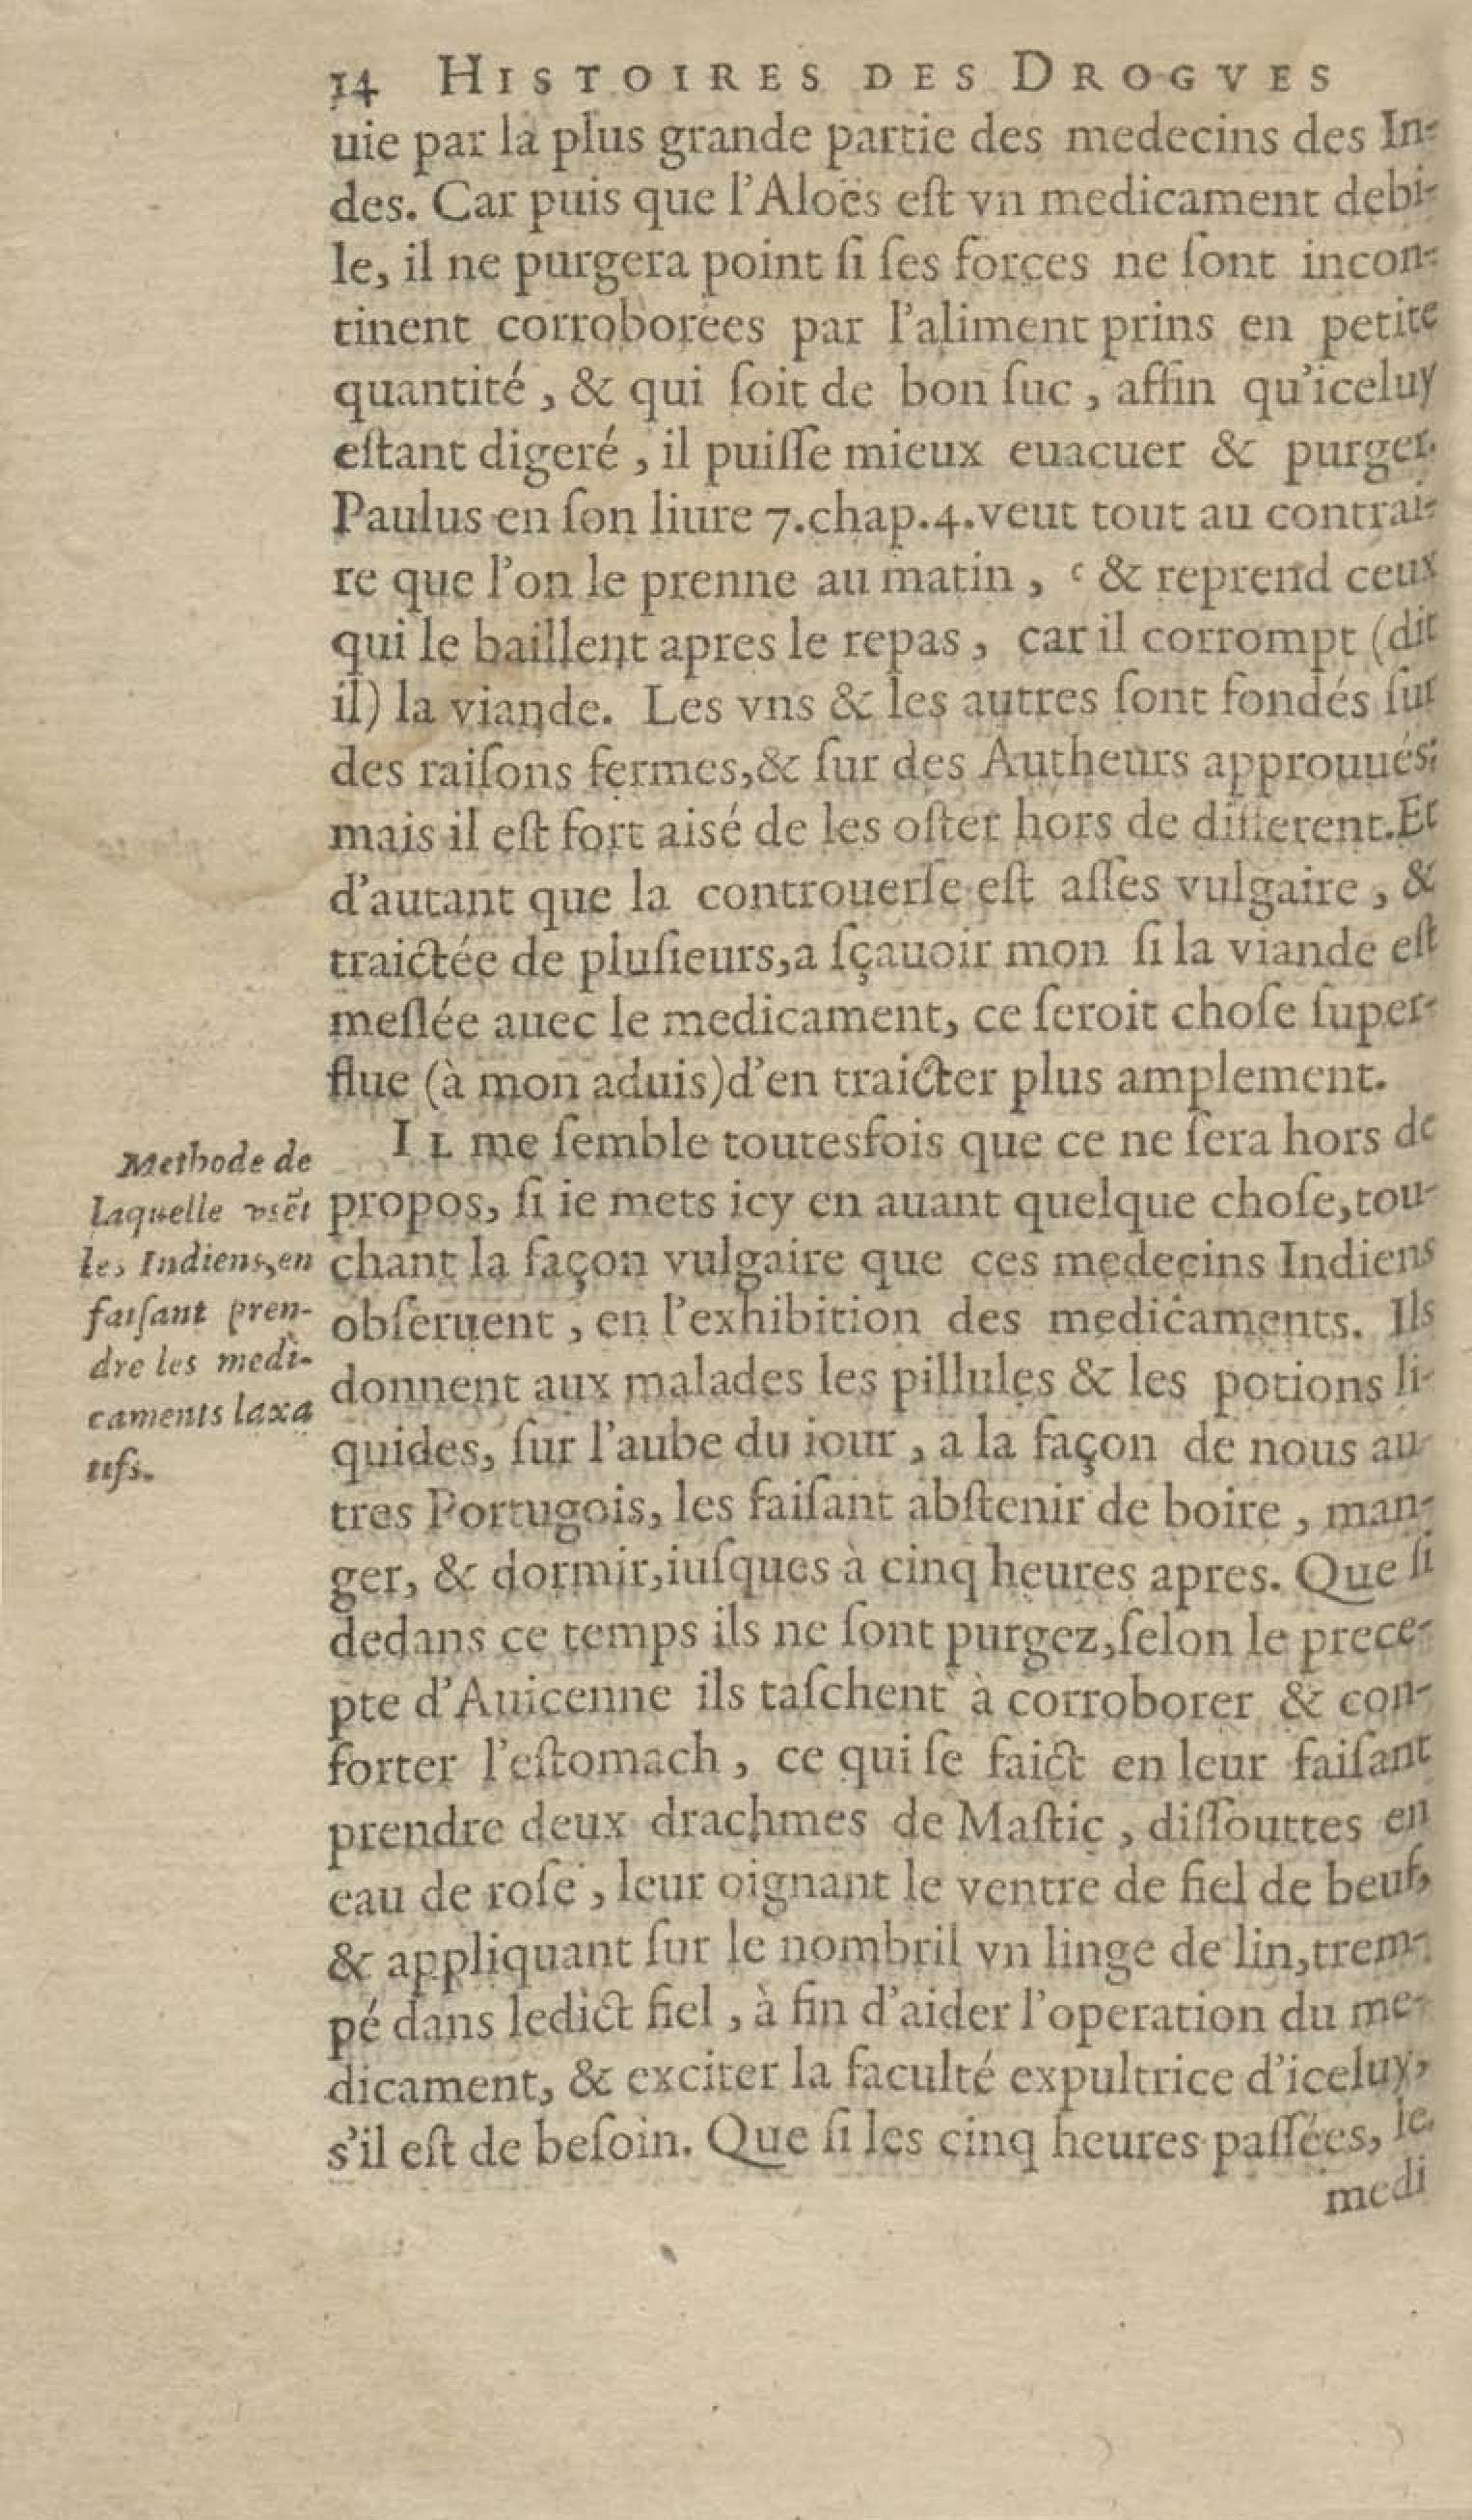 14 HISTOIRES DES DROGVES
uie par la plus grande partie des medecins des In-
des. Car puis que l'Aloës eſt vn medicament debi-
le, il ne purgera point ſi ſes forces ne ſont incon-
tinent corroborées par l'aliment prins en petite
quantité, & qui ſoit de bon ſuc, affin qu'iceluy
eſtant digeré, il puiſſe mieux euacuer & purger.
Paulus en ſon liure 7.chap.4.veut tout au contrai-
re que l'on le prenne au matin, c & reprend ceux
qui le baillent apres le repas, car il corrompt (dit
il) la viande. Les vns & les autres ſont fondés ſur
des raiſons fermes,& ſur des Autheurs approuués:
mais il eſt fort aisé de les oſter hors de different.Et
d'autant que la controuerſe eſt aſſes vulgaire, &
traictée de pluſieurs,a ſçauoir mon ſi la viande eſt
meſlée auec le medicament, ce ſeroit choſe ſuper-
flue (à mon aduis)d'en traicter plus amplement.
IL me ſemble toutesfois que ce ne ſera hors de
propos, ſi ie mets icy en auant quelque choſe,tou-
chant la façon vulgaire que ces medecins Indiens
obſeruent, en l'exhibition des medicaments. Ils
donnent aux malades les pillules & les potions li-
quides, ſur l'aube du iour, a la façon de nous au-
tres Portugois, les faiſant abſtenir de boire, man-
ger, & dormir,iuſques à cinq heures apres. Que ſi
dedans ce temps ils ne ſont purgez,ſelon le prece-
pte d'Auicenne ils taſchent à corroborer & con-
forter l'eſtomach, ce qui ſe faict en leur faiſant
prendre deux drachmes de Maſtic, diſſouttes en
eau de roſe, leur oignant le ventre de fiel de beuf,
& appliquant ſur le nombril vn linge de lin,trem-
pé dans ledict fiel, à fin d'aider l'operation du me-
dicament, & exciter la faculté expultrice d'iceluy,
s'il eſt de beſoin. Que ſi les cinq heures paſſées, le
medi
Methode de
laquelle vsẽt
les Indiens,en
faiſant pren-
dre les medi-
caments laxa
tifs.